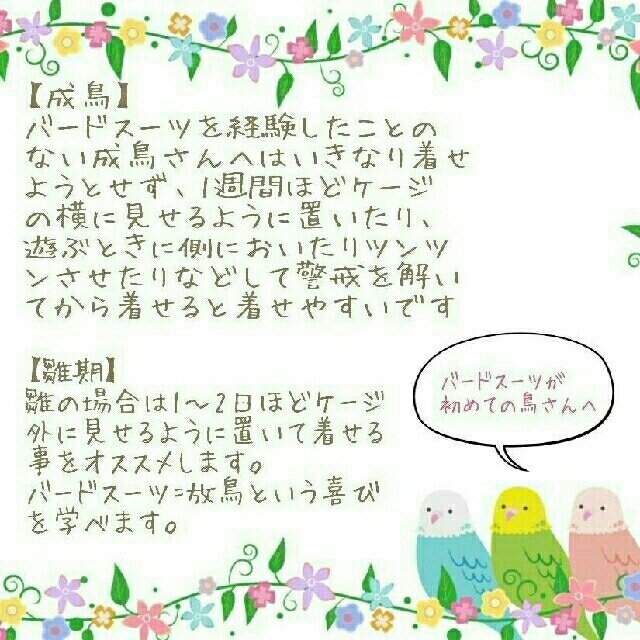 【成鳥】
バードスーツを経験したことの
ない成鳥さんへはいきなり着せ
ようとせず、1週間ほどケージ
の横に見せるように置いたり、
遊ぶときに側においたりツンツ
ンさせたりなどして警戒を解い
てから着せると着せやすいです
【雛期】
雛の場合は1～2日ほどケージ
外に見せるように置いて着せる
事をオススメします。
バードスーツ=放鳥という喜び
を学べます。
バードスーツが
初めての鳥さんへ